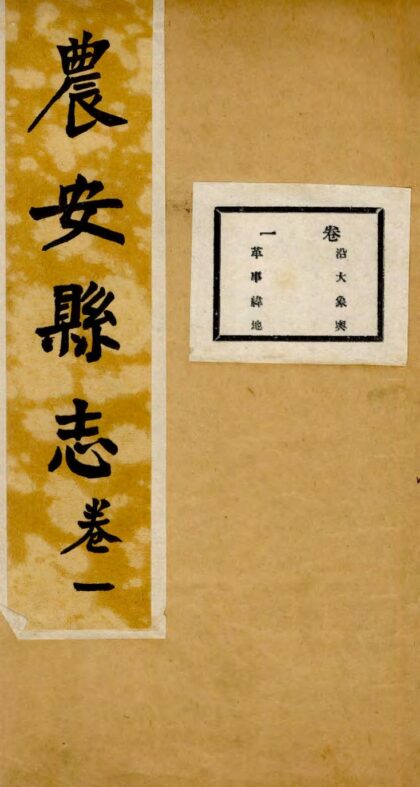 農安縣志卷一
卷一
沿革
大事
象緯
輿地